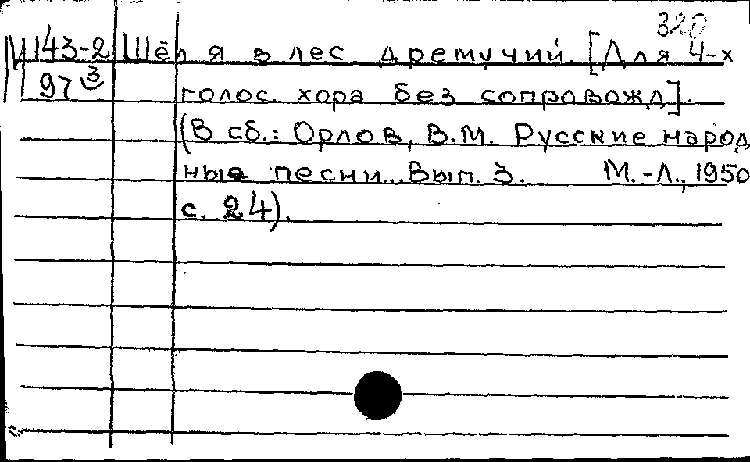 320
М 143-2 Шёл я в лес дремучий. [Для 4-х
97 3 голос. хора без сопровожд].
(В сб.: Орлов, В.М. Русские народ
ные песни. Вып. 3. М.-Л., 1950
с. 24).